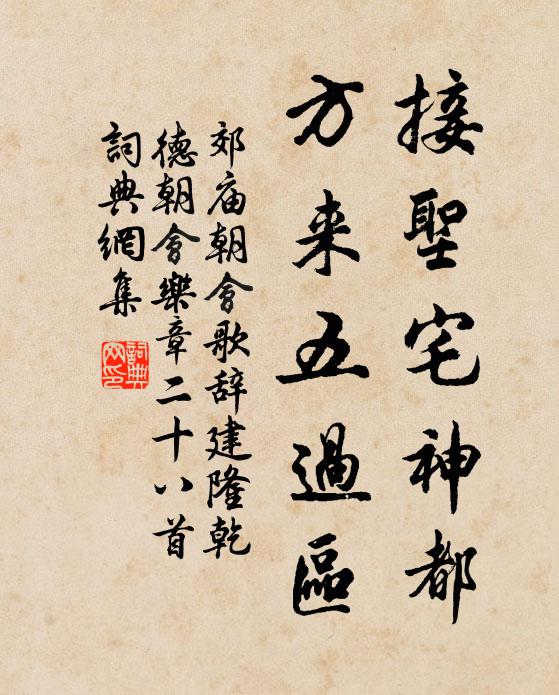 接聖宅神都
方来五過區
郊庙朝會歌辞建隆乾
德朝會樂章二十八首
詞典網集
詞典
网印